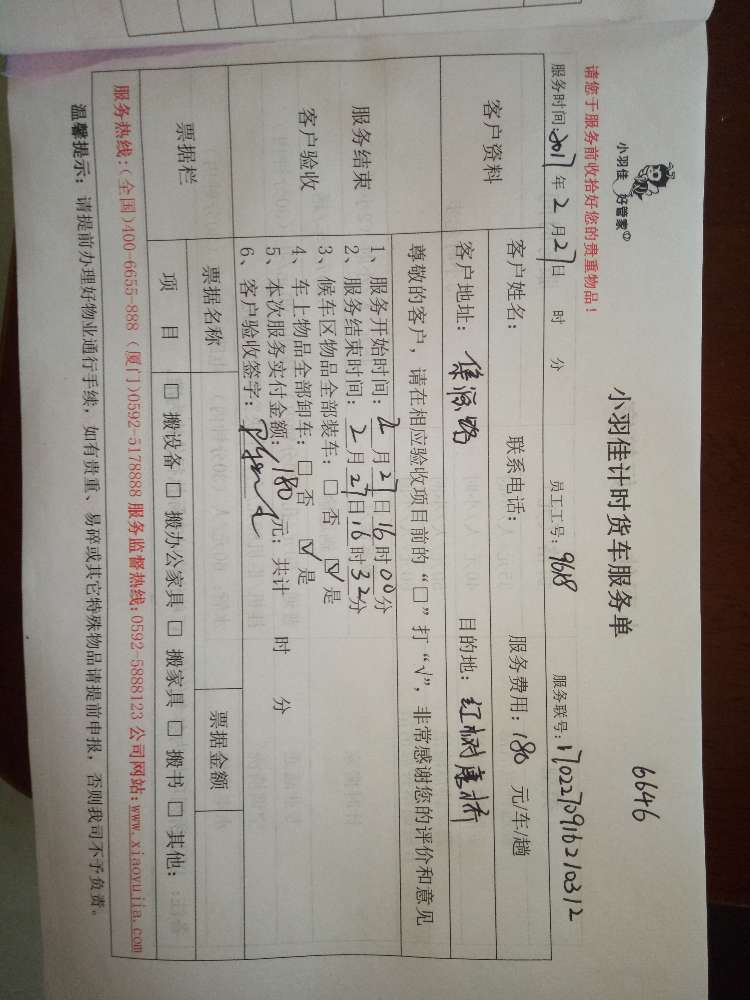 小羽佳 好管家
小羽佳计时货车服务单
6646
请您于服务前收拾好您的贵重物品！
服务时间：2017年2月27日 时 分 员工工号：9618 服务联号：1702270916210312
客户资料
客户姓名： 联系电话： 服务费用：180 元/车/趟
客户地址： 路 目的地：红树康桥
服务结束
客户验收
尊敬的客户，请在相应验收项目前的“□”打“√”，非常感谢您的评价和意见
1、服务开始时间：2月27日16时00分
2、服务结束时间：2月27日16时32分
3、候车区物品全部装车：□ 否 ☑ 是
4、车上物品全部卸车：□ 否 ☑ 是
5、本次服务实付金额：180元；共计 时 分
6、客户验收签字：
票据栏
票据名称 票据金额
项 目 □ 搬设备 □ 搬办公家具 □ 搬家具 □ 搬书 □ 其他：
服务热线：(全国)400-6655-888 (厦门)0592-5178888 服务监督热线：0592-5888123 公司网站：www.xiaoyujia.com
温馨提示：请提前办理好物业通行手续，如有贵重、易碎或其它特殊物品请提前申报，否则我司不予负责。